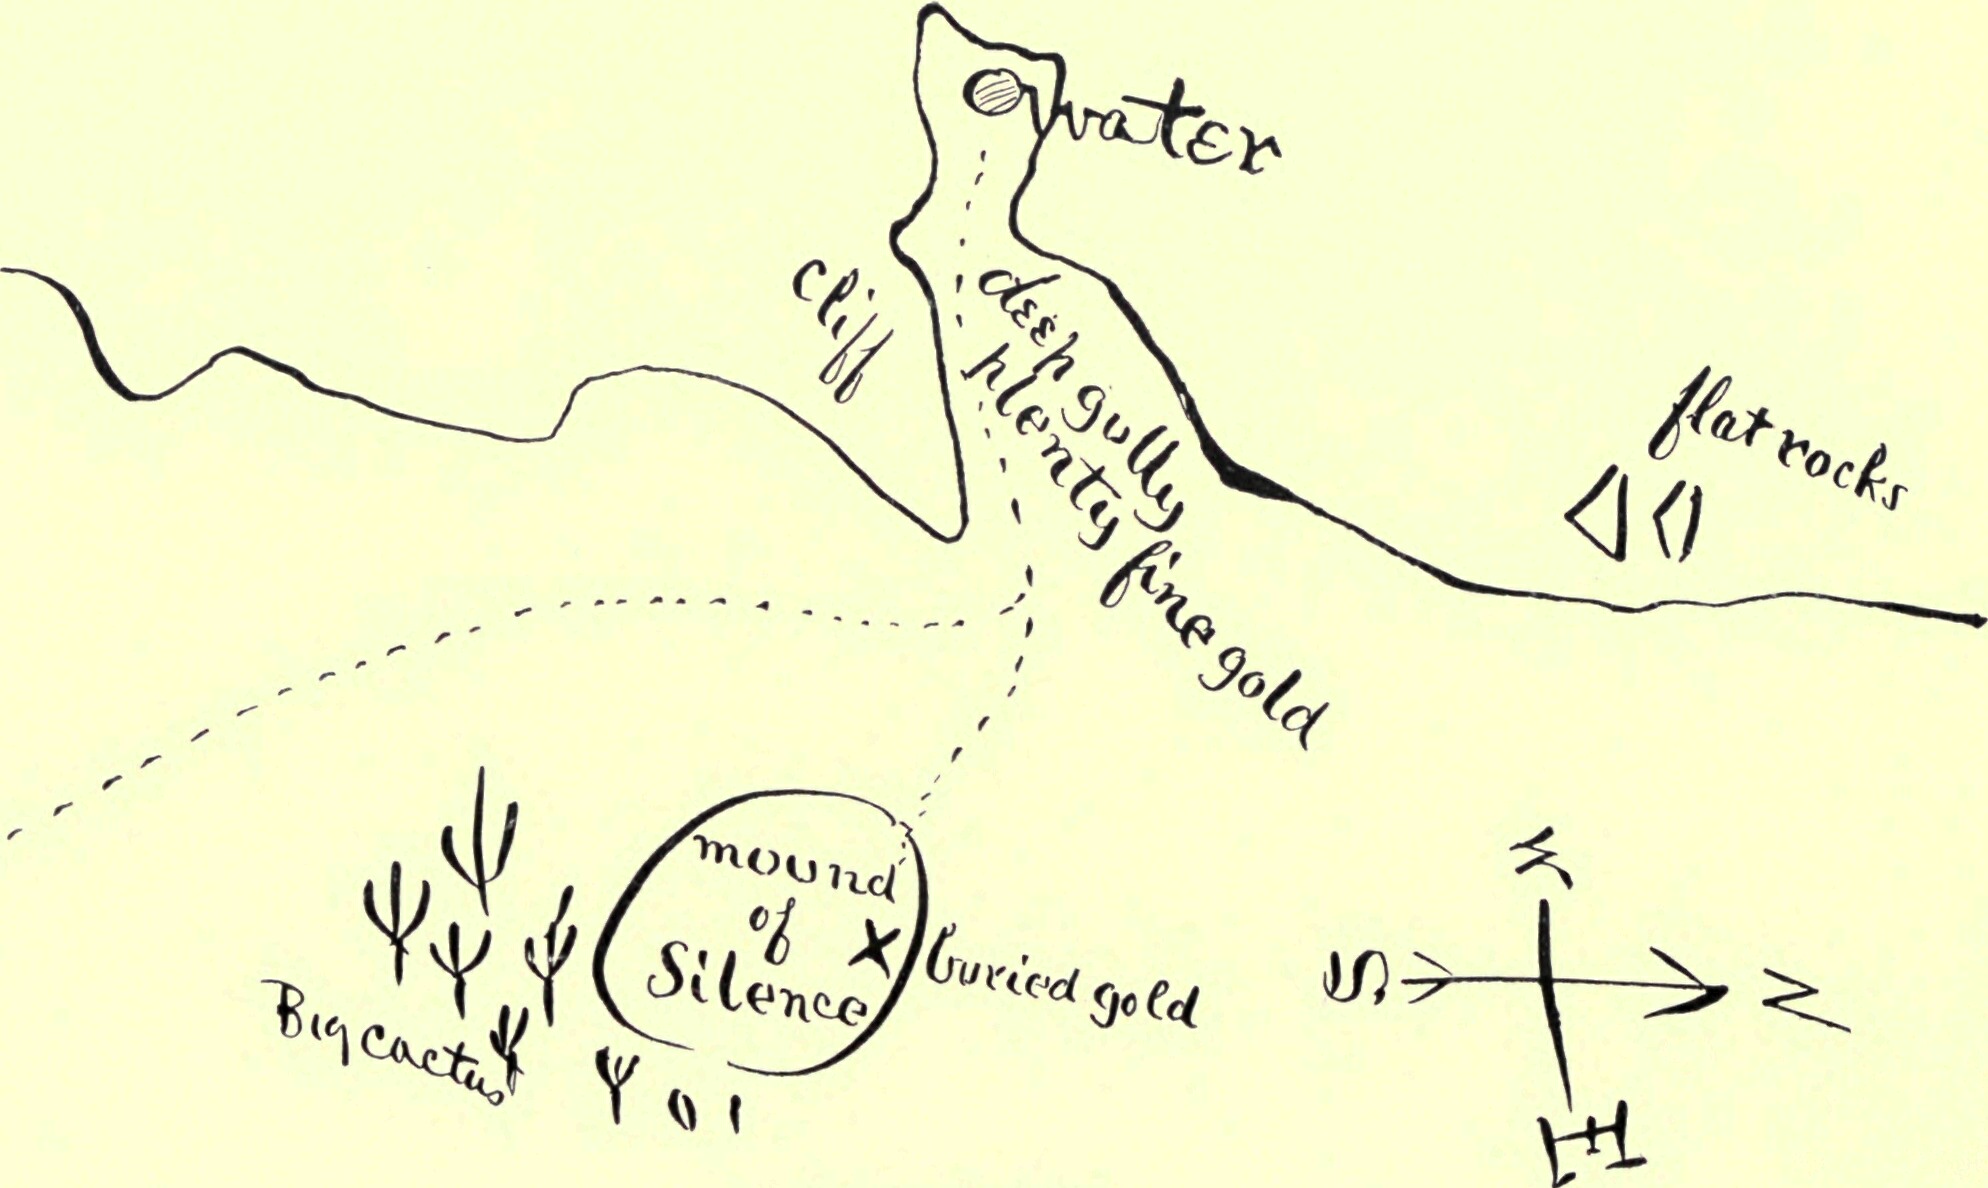 water
cliff
deep gully
plenty fine gold
flat rocks
mound
of
Silence
X
buried gold
Big cactus
W
S
N
E